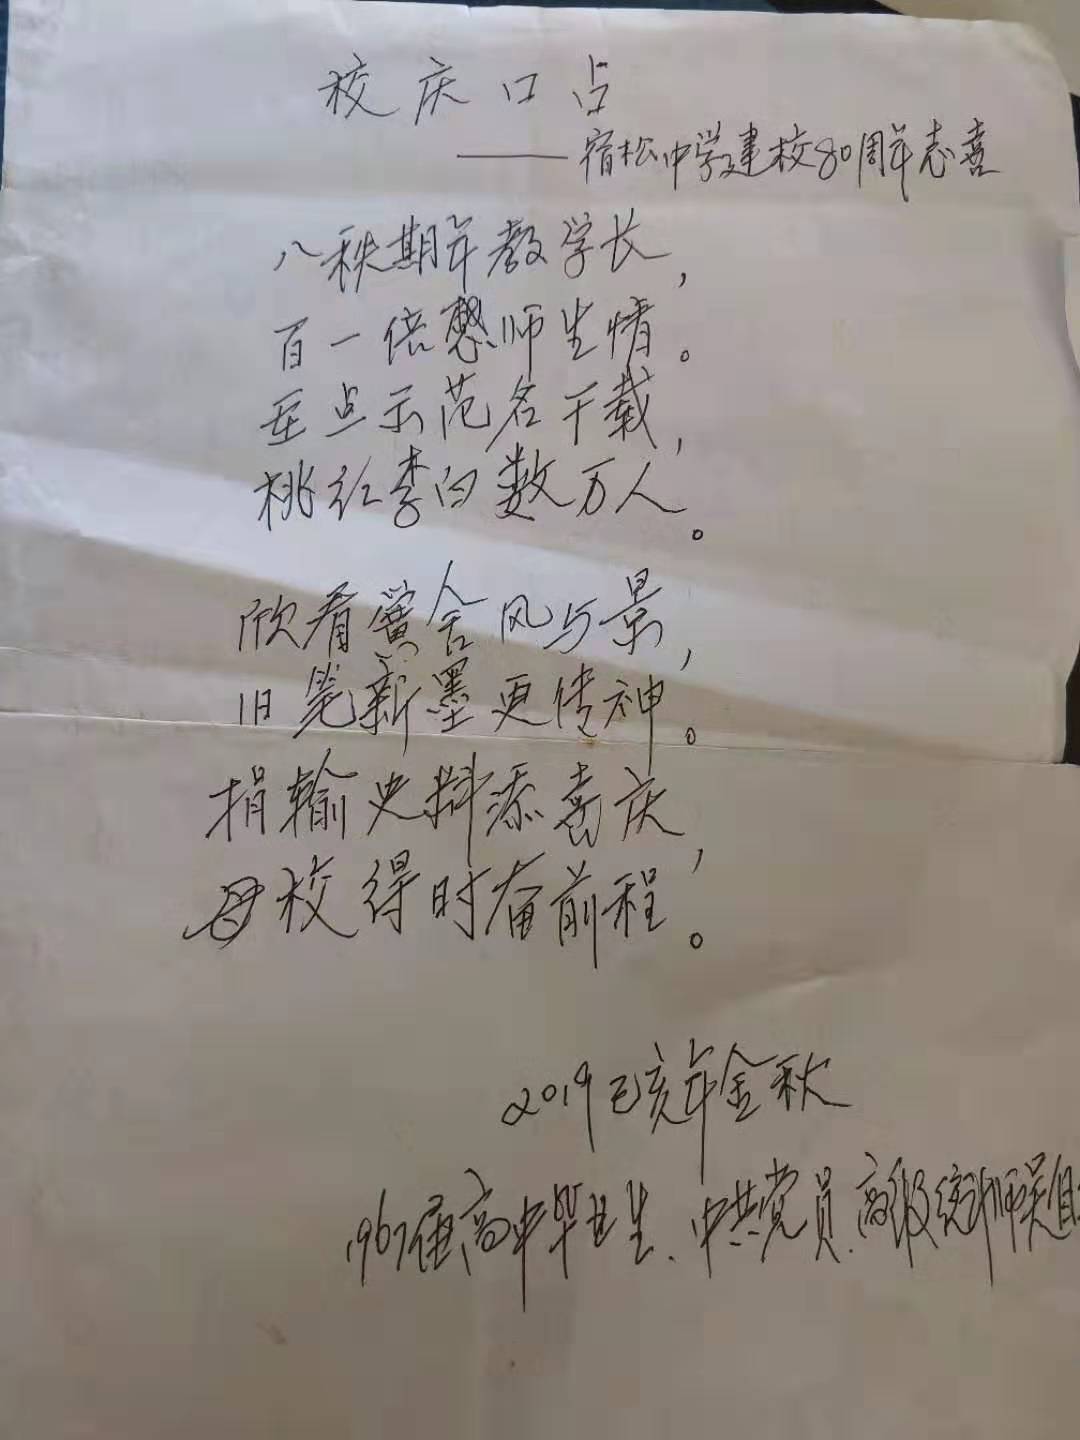 校庆口占
——宿松中学建校80周年志喜
八秩期年教学长，
百一倍憨师生情。
至点示范名千载，
桃红李白数万人。
欣看黉舍风与景，
旧笔新墨更传神。
捐输史料添喜庆，
母校得时奋前程。
2019己亥年金秋
1967届高中毕业生、中共党员、高级统计师吴自